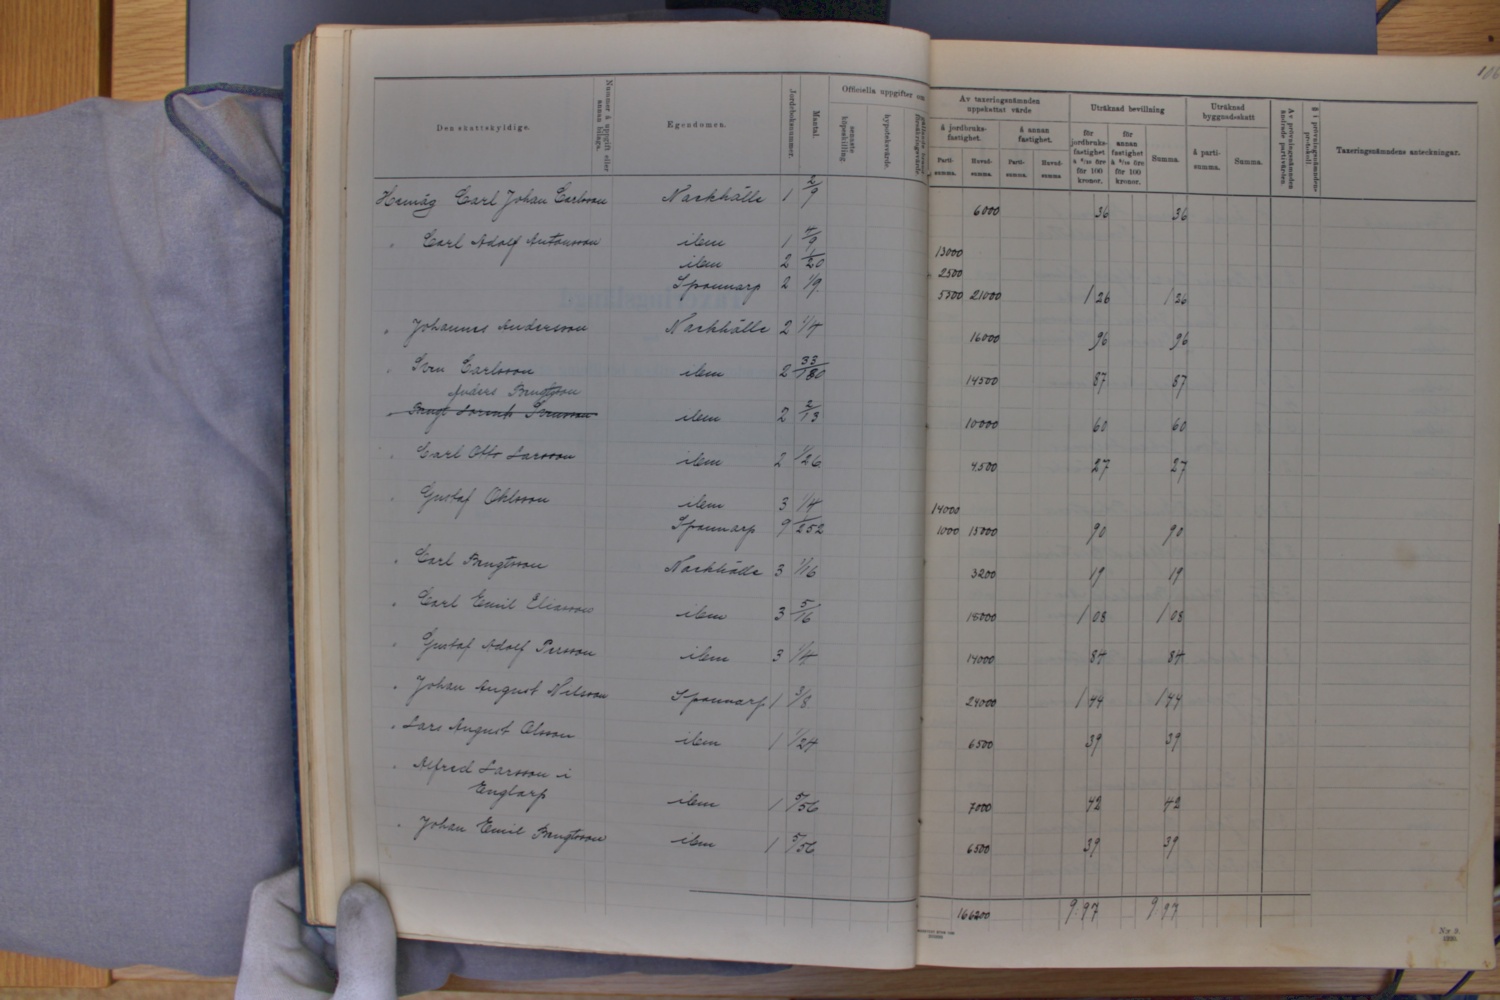 106
Den skattskyldige.
Nummer å uppgift eller annan bilaga.
Egendomen.
Jordeboksnummer.
Mantal.
Officiella uppgifter om
senaste köpeskilling.
hypoteksvärde.
Av taxeringsnämnden uppskattat värde
å jordbruksfastighet.
å annan fastighet.
Partisumma.
Huvudsumma.
Partisumma.
Huvudsumma
Uträknad bevillning
för jordbruksfastighet å 6/10 öre för 100 kronor.
för annan fastighet å 6/10 öre för 100 kronor.
Summa.
Uträknad byggnadsskatt
å partisumma.
Summa.
Av prövningsnämnden ändrade partivärden
§ i prövningsnämndens protokoll
Taxeringsnämndens anteckningar.
Hemäg Carl Johan Carlsson Nackhälle 1 2/9 6000 36 36
" Carl Adolf Antonsson idem 1 4/9 13000
idem 2 1/20 2500
Sponnarp 2 1/9 5500 21000 1 26 1 26
" Johannes Andersson Nackhälle 2 1/4 16000 96 96
" Sven Carlsson idem 2 33/180 14500 87 87
Anders Bengtsson
idem 2 2/13 10000 60 60
" Carl Otto Larsson idem 2 1/26 4500 27 27
" Gustaf Ohlsson idem 3 1/4 14000
Sponnarp 9 1/252 1000 15000 90 90
" Carl Bengtsson Nackhälle 3 1/16 3200 19 19
" Carl Emil Eliasson idem 3 5/16 18000 1 08 1 08
" Gustaf Adolf Persson idem 3 1/4 14000 84 84
" Johan August Nilsson Sponnarp 1 3/8 24000 1 44 1 44
" Lars August Olsson idem 1 1/24 6500 39 39
" Alfred Larsson i
Englarp idem 1 5/56 7000 42 42
" Johan Emil Bengtsson idem 1 5/56 6500 39 39
166200 9.97 9.97
No 9.